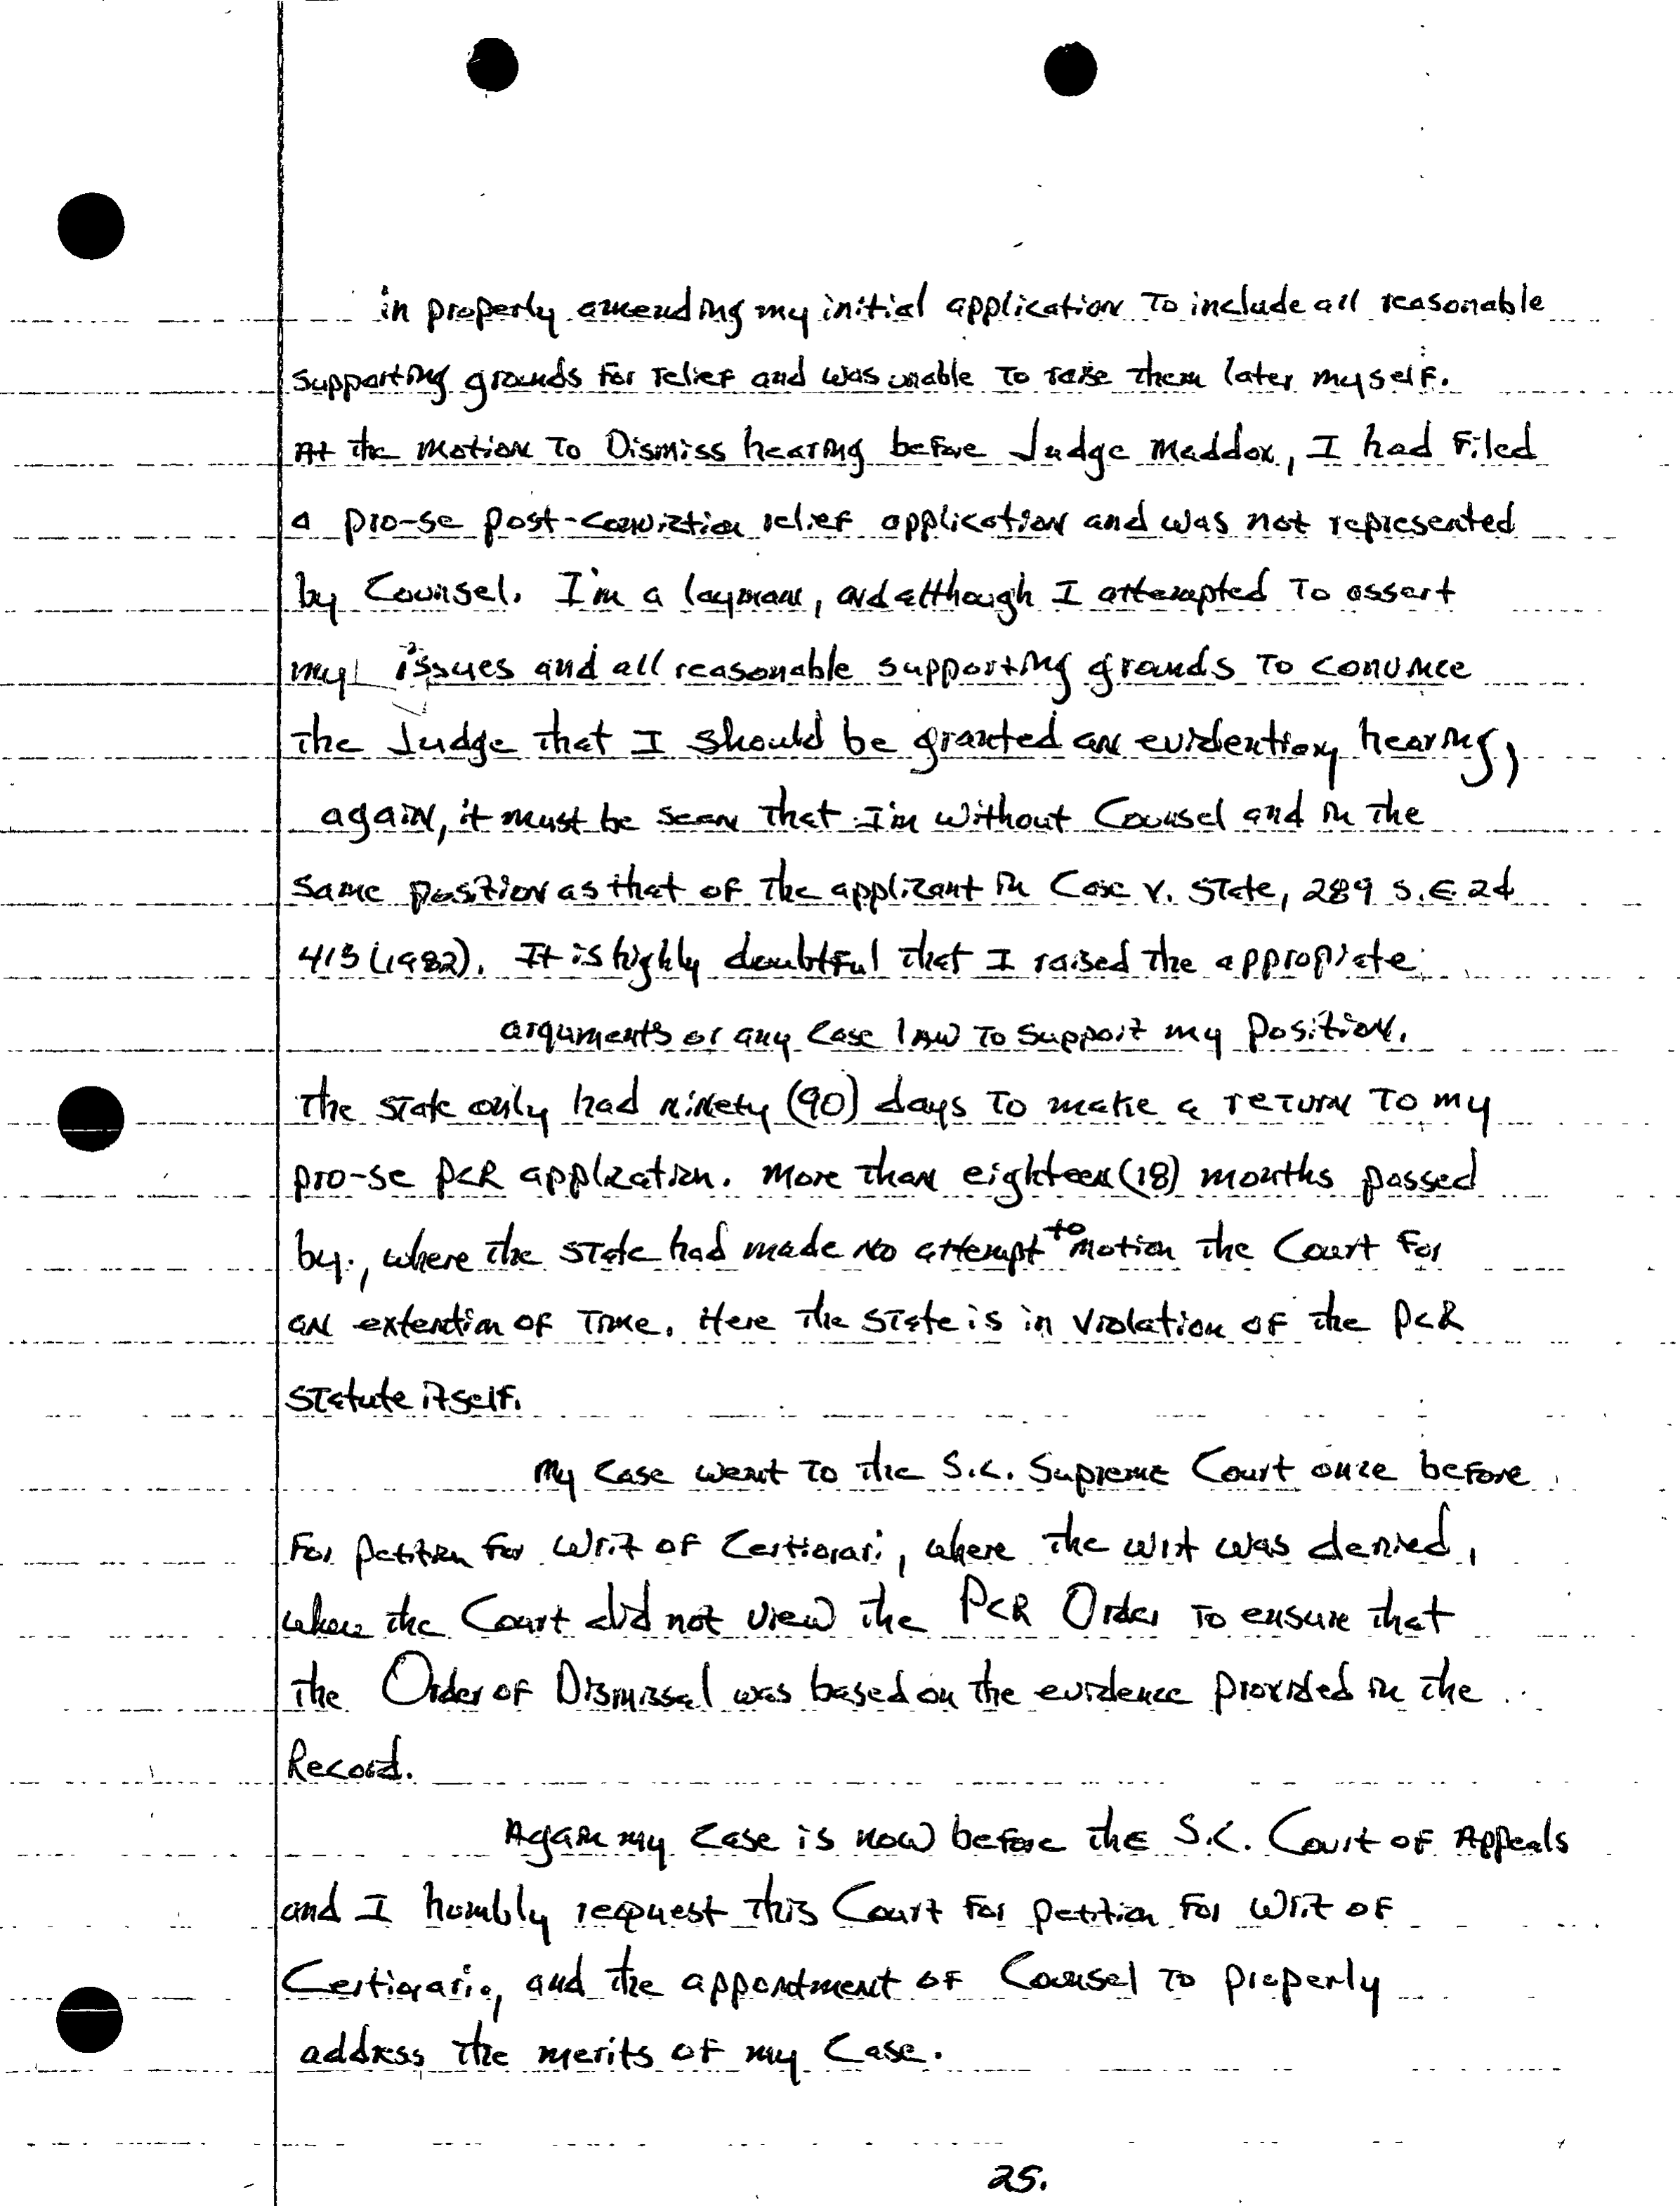 in properly amending my initial application To include all reasonable
supporting grounds for relief and was unable To raise them later myself.
At the Motion To Dismiss hearing before Judge Maddox, I had Filed
a pro-se post-conviction relief application and was not represented
by Counsel. I'm a layman, and although I attempted To assert
my issues and all reasonable supporting grounds To convince
the Judge that I should be granted an evidentiary hearing,
again, it must be seen that I'm without Counsel and in the
same position as that of the applicant in Case v. State, 289 S.E.2d
413 (1982). It is highly doubtful that I raised the appropiate
arguments or any Case law To Support my Position.
The State only had ninety (90) days To make a return To my
pro-se PCR application. More than eighteen (18) months passed
by, where the State had made no attempt to motion the Court For
an extention of Time. Here the State is in violation of the PCR
Statute itself.
My Case went To the S.C. Supreme Court once before
For petition for Writ of Certiorari, where the writ was denied,
where the Court did not view the PCR Order To ensure that
the Order of Dismissal was based on the evidence provided in the
Record.
Again my Case is now before the S.C. Court of Appeals
and I humbly request this Court For petition For Writ of
Certiorario, and the appointment of Counsel To properly
address the merits of my Case.
25.